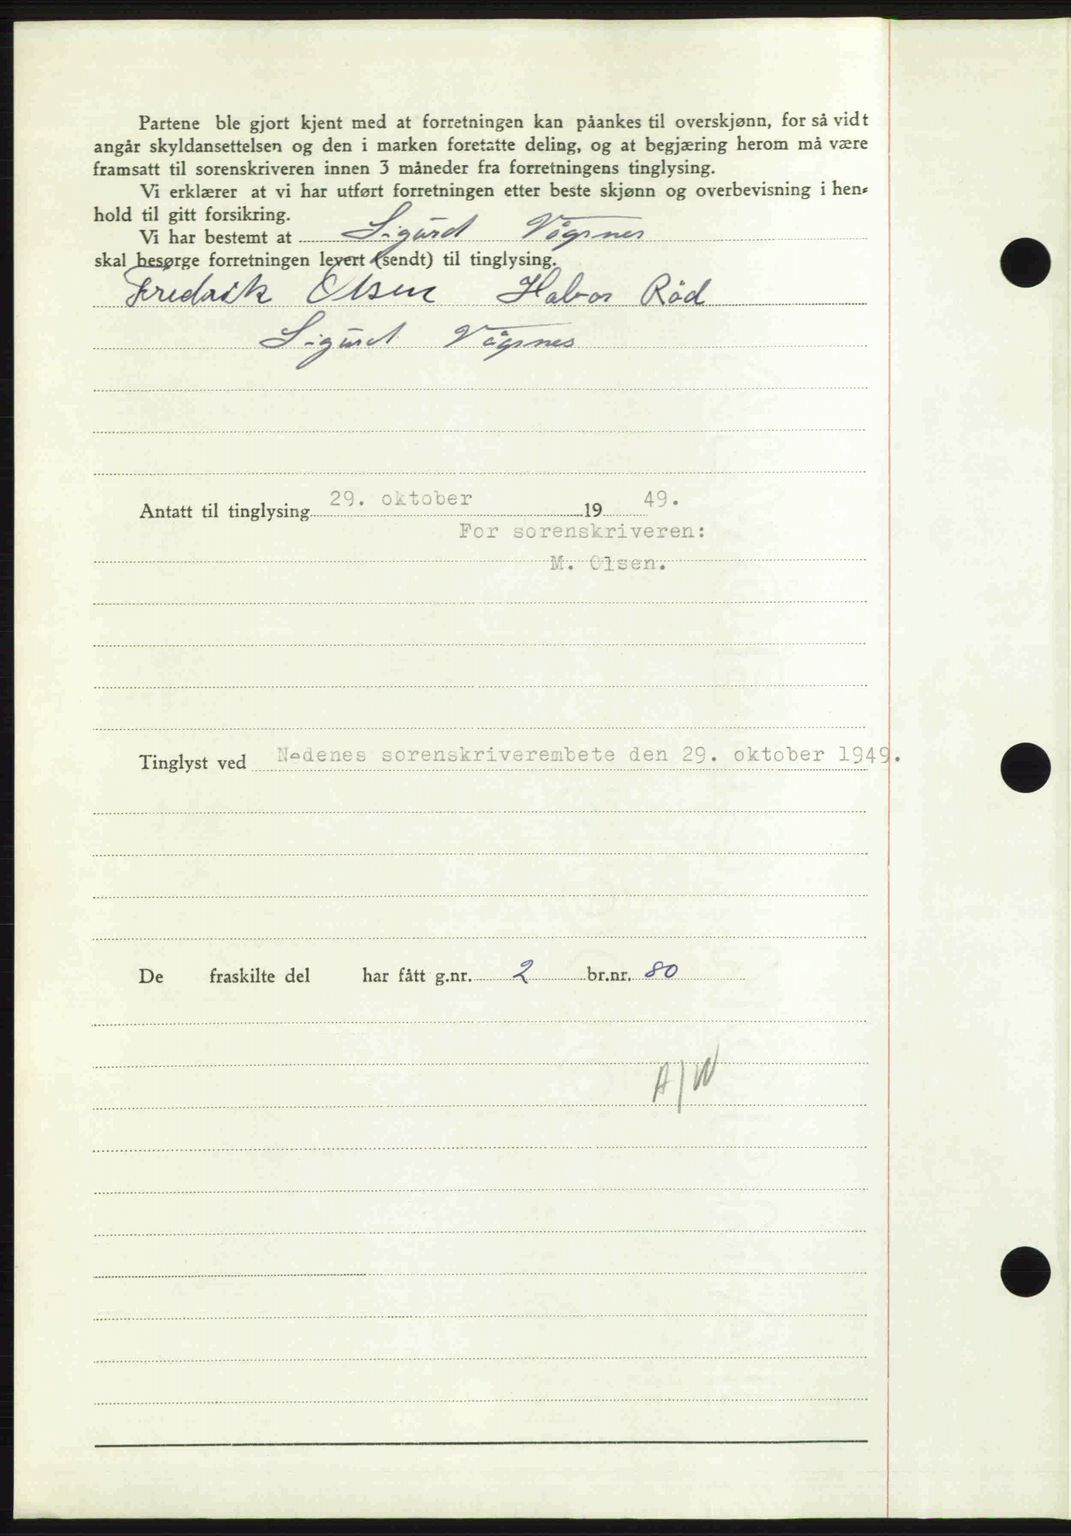 Partene ble gjort kjent med at forretningen kan påankes til overskjønn, for så vidt
angår skyldansettelsen og den i marken foretatte deling, og at begjæring herom må være
framsatt til sorenskriveren innen 3 måneder fra forretningens tinglysing.
Vi erklærer at vi har utført forretningen etter beste skjønn og overbevisning i hen-
hold til gitt forsikring.
Vi har bestemt at Sigurd Vågsnes
skal besørge forretningen levert (sendt) til tinglysing.
Fredrik Olsen Halvor Röd
Sigurd Vågsnes
Antatt til tinglysing 29. oktober 19 49.
For sorenskriveren:
M. Olsen.
Tinglyst ved Nedenes sorenskriverembete den 29. oktober 1949.
De fraskilte del har fått g.nr. 2 br.nr. 80
A/W